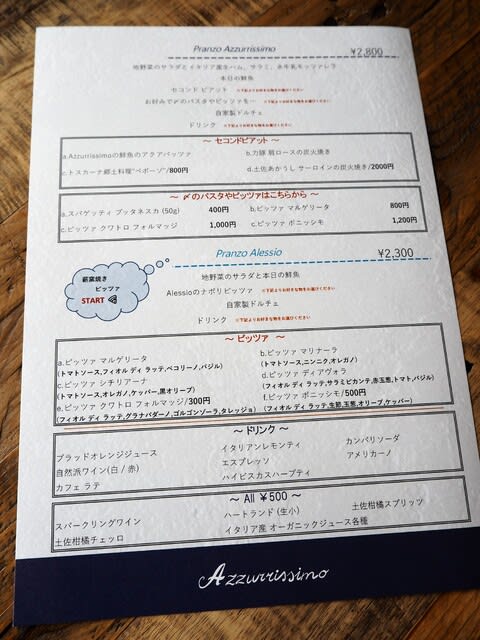 Pranzo Azzurrissimo ¥2,800
地野菜のサラダとイタリア産生ハム、サラミ、水牛乳モッツァレラ
本日の鮮魚
セコンド ピアット ※下記よりお好きな物をお選びください
お好みで〆のパスタやピッツァを… ※下記よりお好きな物をお選びください
自家製ドルチェ
ドリンク ※下記よりお好きな物をお選びください
～ セコンドピアット ～
a.Azzurrissimoの鮮魚のアクアパッツァ b.力豚 肩ロースの炭火焼き
c.トスカーナ郷土料理"ペポーゾ"/800円 d.土佐あかうし サーロインの炭火焼き/2000円
～ 〆のパスタやピッツァはこちらから ～
a.スパゲッティ プッタネスカ (50g) 400円 b.ピッツァ マルゲリータ 800円
c.ピッツァ クワトロ フォルマッジ 1,000円 c.ピッツァ ボニッシモ 1,200円
Pranzo Alessio ¥2,300
薪窯焼き
ピッツァ
START
地野菜のサラダと本日の鮮魚
Alessioのナポリピッツァ ※下記よりお好きな物をお選びください
自家製ドルチェ
ドリンク ※下記よりお好きな物をお選びください
～ ピッツァ ～
a.ピッツァ マルゲリータ b.ピッツァ マリナーラ
(トマトソース,フィオル ディ ラッテ,ペコリーノ,バジル) (トマトソース,ニンニク,オレガノ)
c.ピッツァ シチリアーナ d.ピッツァ ディアヴォラ
(トマトソース,オレガノ,ケッパー,黒オリーブ) (フィオル ディ ラッテ,サラミピカンテ,赤玉葱,トマト,バジル)
e.ピッツァ クワトロ フォルマッジ/300円 f.ピッツァ ボニッシモ/500円
(フィオル ディ ラッテ,グラナパダーノ,ゴルゴンゾーラ,タレッジョ) (フィオル ディ ラッテ,生節,玉葱,オリーブ,ケッパー)
～ ドリンク ～
ブラッドオレンジジュース イタリアンレモンティ カンパリソーダ
自然派ワイン(白 / 赤) エスプレッソ アメリカーノ
カフェ ラテ ハイビスカスハーブティ
～ All ￥500 ～
スパークリングワイン ハートランド (生小) 土佐柑橘スプリッツ
土佐柑橘チェッロ イタリア産 オーガニックジュース各種
Azzurrissimo